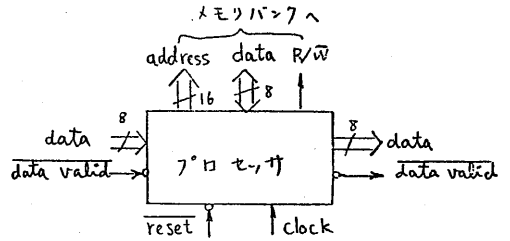 メモリバンクへ
address data R/W̅
16 8
8 8
data data
d̅a̅t̅a̅ ̅v̅a̅l̅i̅d̅ プロセッサ d̅a̅t̅a̅ ̅v̅a̅l̅i̅d̅
r̅e̅s̅e̅t̅ clock